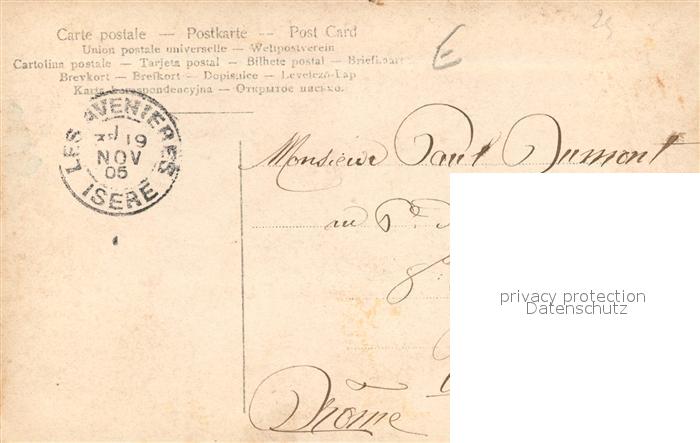 Carte postale — Postkarte — Post Card
Union postale universelle — Weltpostverein
Cartolina postale — Tarjeta postal — Bilhete postal — Briefkaart
Brevkort — Brefkort — Dopisnice — Levelező-Lap
Karta korespondencyjna — Открытое письмо.
LES AVENIERES
19
NOV
05
ISERE
E
Monsieur Paul Dumont
au
privacy protection
Datenschutz
Drôme